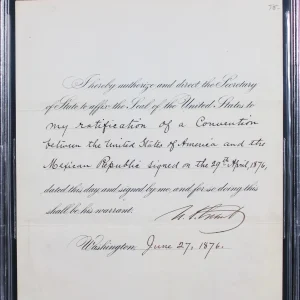 I hereby authorize and direct the Secretary
of State to affix the Seal of the United States to
my ratification of a Convention
between the United States of America and the
Mexican Republic signed on the 29th April, 1876,
dated this day and signed by me, and for so doing this
shall be his warrant.
U. S. Grant
Washington, June 27, 1876.